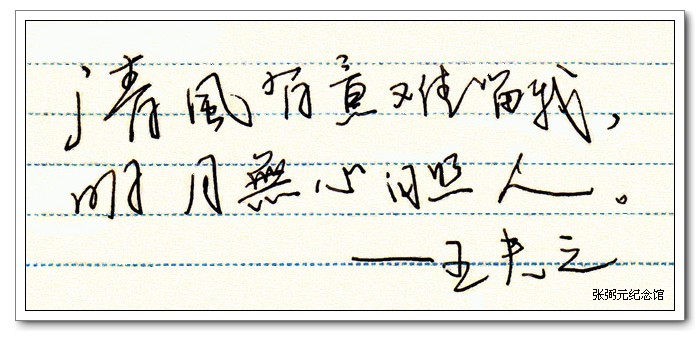 清風有意难留我，
明月無心自照人。
——王夫之
张弼元纪念馆